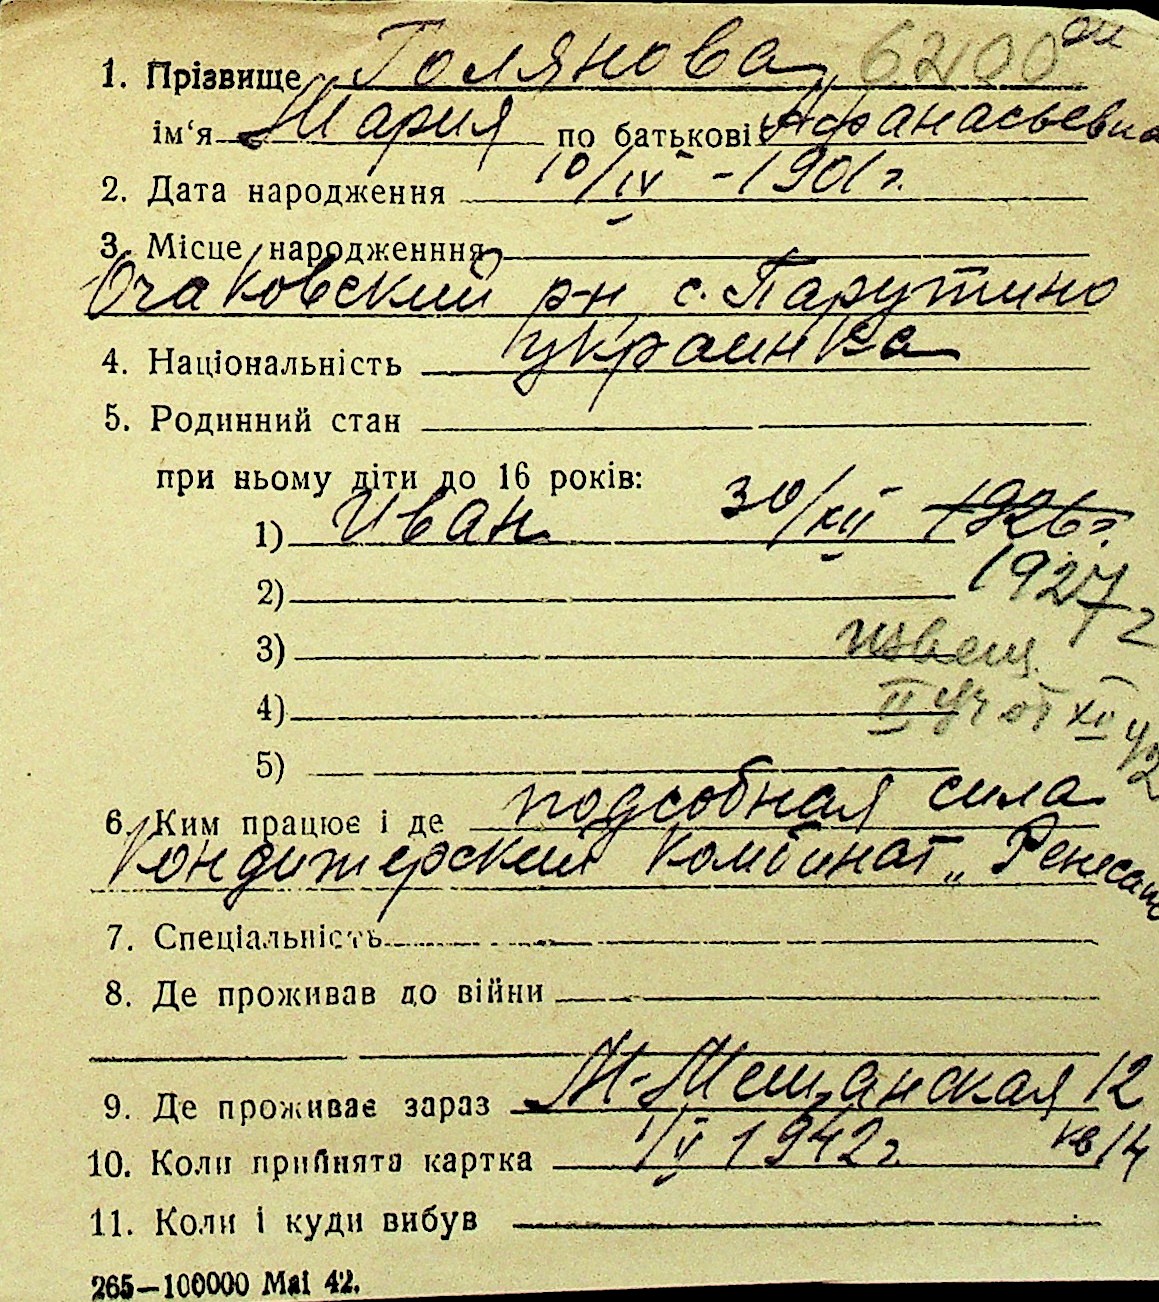 1. Прізвище Голянова 62100
ім‘я Мария по батькові Афанасьевна
2. Дата народження 10/IV - 1901 г.
3. Місце народженння
Очаковский р-н, с. Парутино
4. Національність украинка
5. Родинний стан
при ньому діти до 16 років:
1) Иван 30/XII 1926 г.
2) 1927
3) извещ.
4) II уч от XII 42
5)
6. Ким працює і де подсобная сила
Кондитерский комбинат „Ренесанс
7. Спеціальність
8. Де проживав до війни
9. Де проживає зараз М-Мещанская 12
10. Коли прийнята картка 1/V 1942 г. кв 14
11. Коли і куди вибув
265—100000 Mai 42.